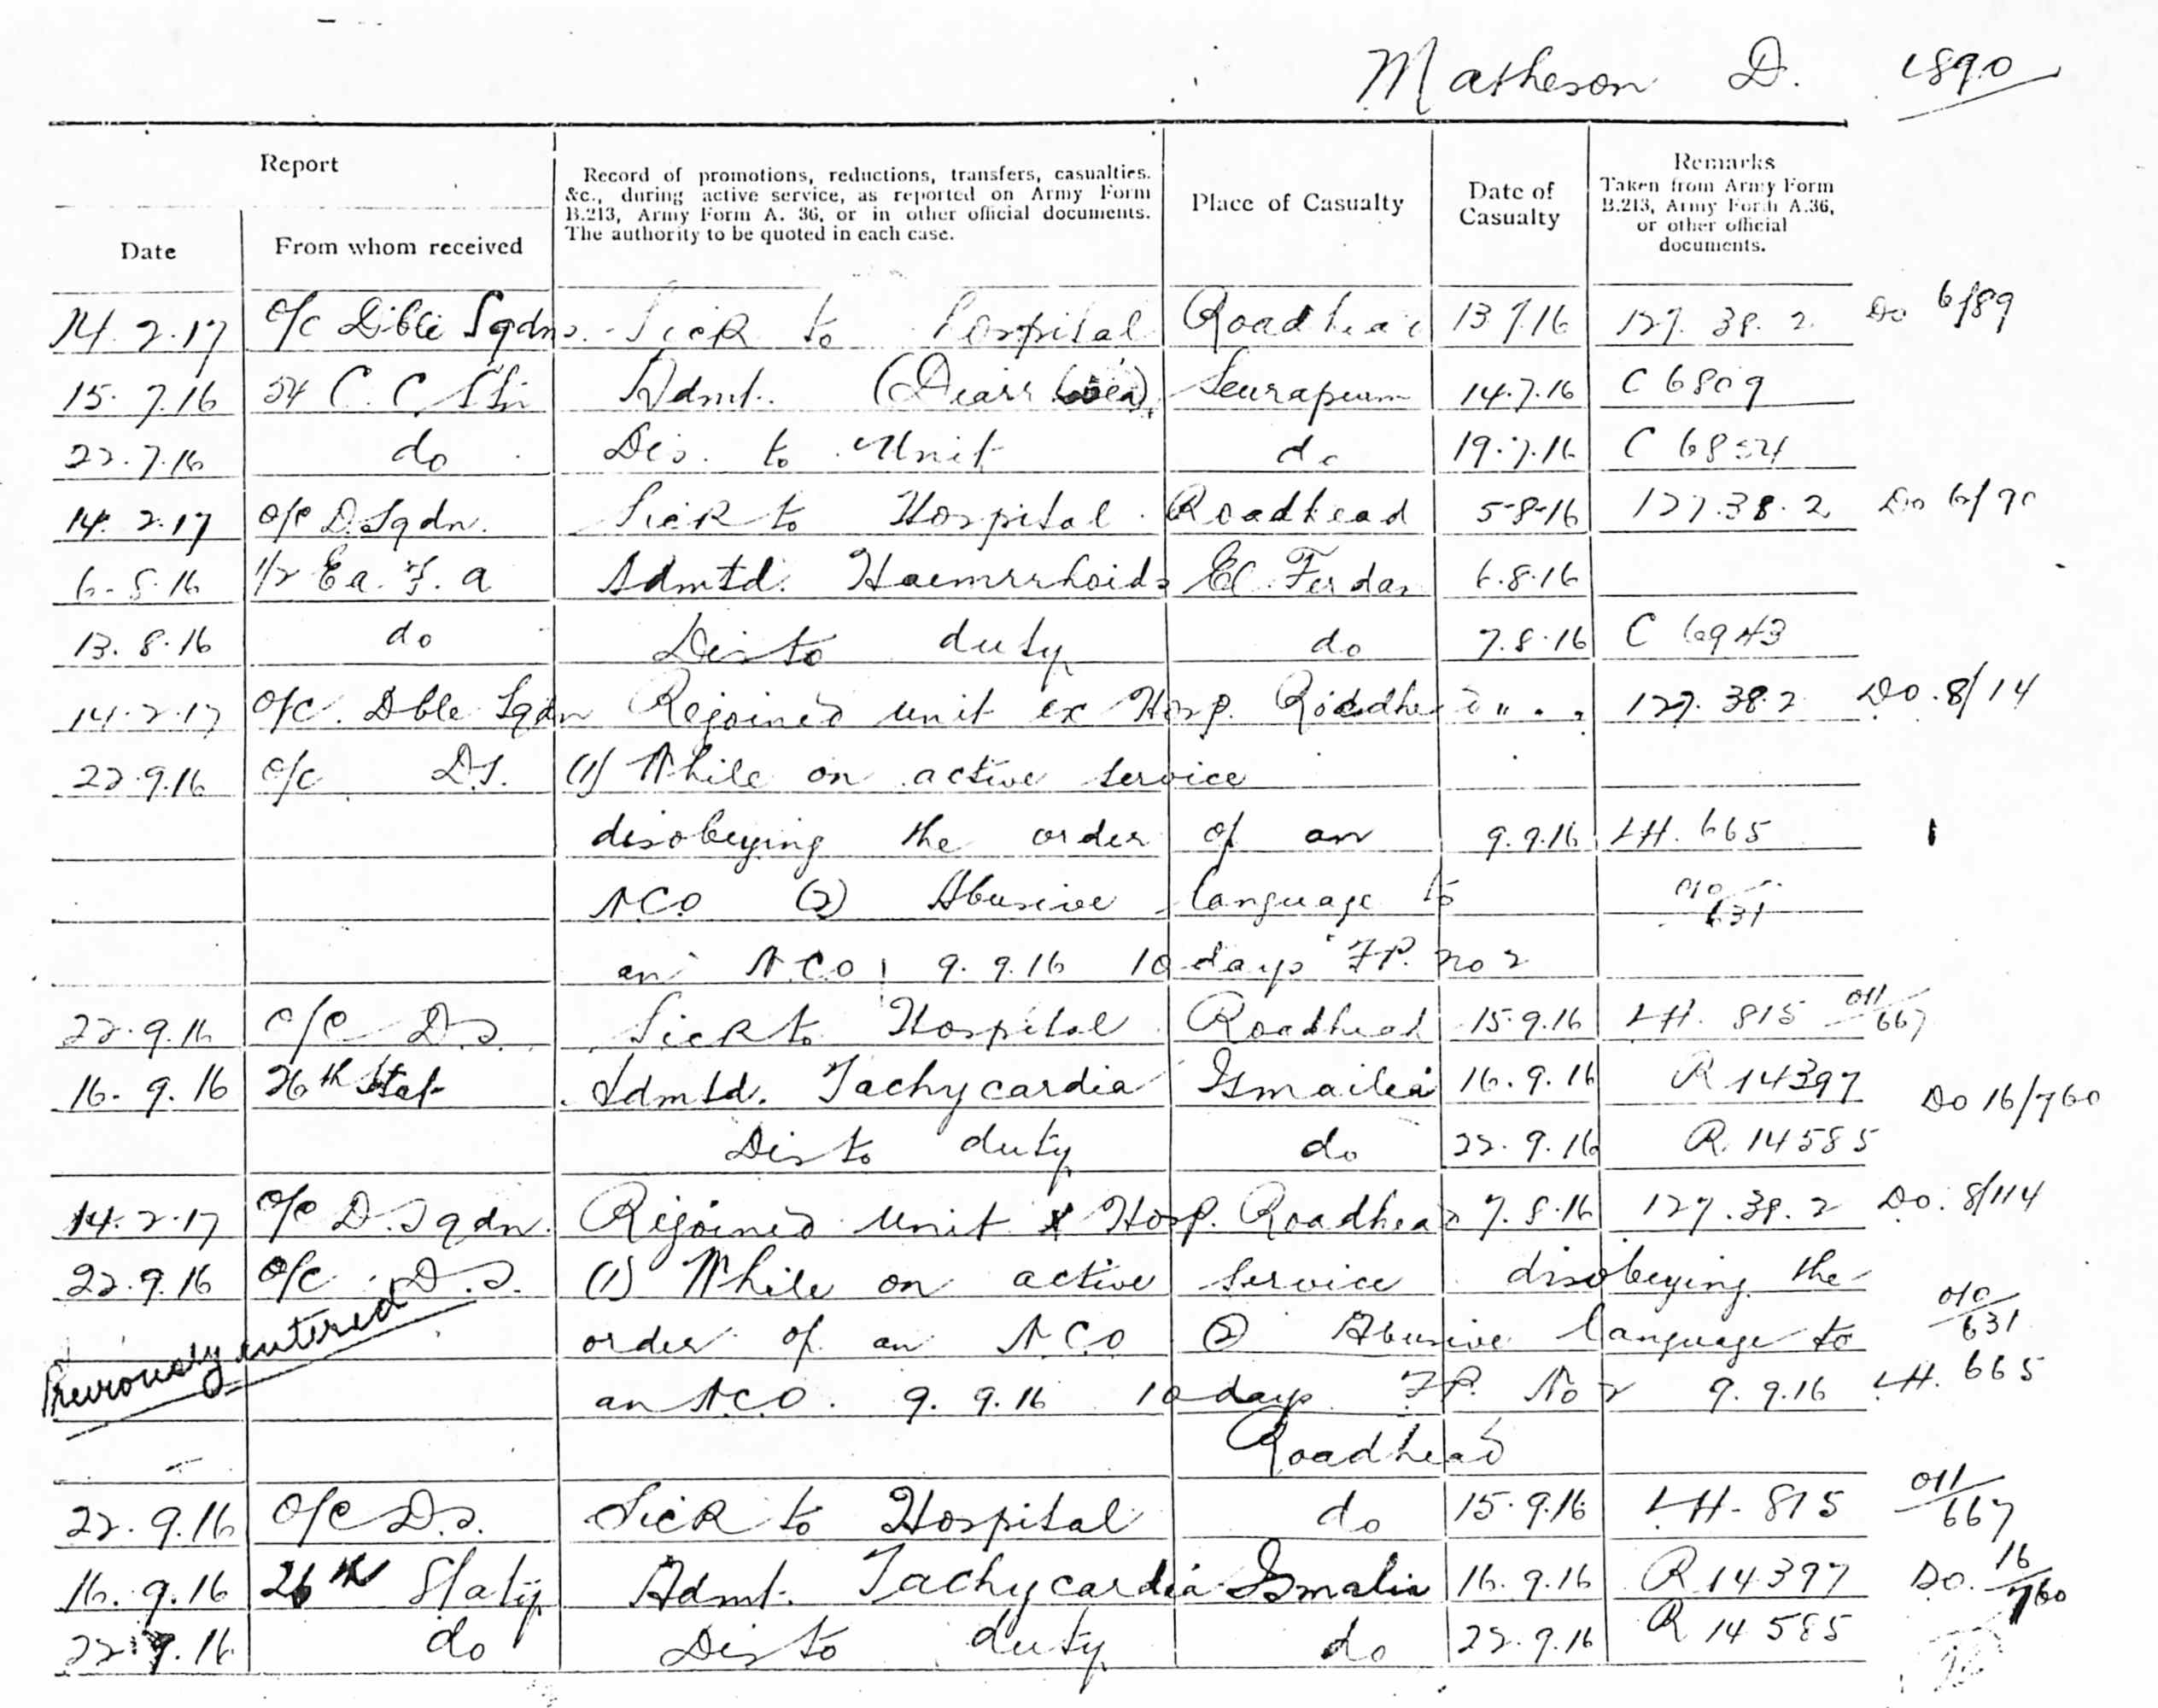 Matheson D. 1890
Report
Record of promotions, reductions, transfers, casualties.
&c., during active service, as reported on Army Form
B.213, Army Form A. 36, or in other official documents.
The authority to be quoted in each case.
Place of Casualty
Date of
Casualty
Remarks
Taken from Army Form
B.213, Army Form A.36,
or other official
documents.
Date
From whom received
14.2.17 O/C Dble Sqdn. Sick to Hospital Roadhead 13.7.16 127.38.2 Do 6/89
15.7.16 54 C.C. Stn Admt. (Diarrhoea) Seurapeum 14.7.16 C 6809
22.7.16 do Dis. to Unit do 19.7.16 C 6854
14.2.17 O/C D.Sqdn. Sick to Hospital Roadhead 5-8-16 127.38.2 Do 6/90
6-8-16 1/2 Ea. F. a Admtd. Haemrrhoids El Ferdan 6.8.16
13.8.16 do Dis to duty do 7.8.16 C 6943
14.2.17 O/C. Dble Sqdn Rejoined unit ex Hosp. Roadhead " " " 127.38.2 Do. 8/14
22.9.16 O/C D.S. (1) While on active service
disobeying the order of an 9.9.16 LH. 665
NCO (2) Abusive language to 010/631
an N.C.O. 9.9.16 10 days F.P. no 2
22.9.16 O/C D.S. Sick to Hospital Roadhead 15.9.16 LH. 815 011/667
16.9.16 26th Stat Admtd. Tachycardia Ismailia 16.9.16 R 14397 Do 16/760
Dis to duty do 22.9.16 R. 14585
14.2.17 O/C D.Sqdn. Rejoined unit x Hosp. Roadhead 7.8.16 127.38.2 Do. 8/114
22.9.16 O/C D.S. (1) While on active service disobeying the
Previously entered order of an N.C.O (2) Abusive language to 010/631
an N.C.O. 9.9.16 10 days F.P. No 2 9.9.16 LH. 665
Roadhead
22.9.16 O/C D.S. Sick to Hospital do 15.9.16 LH-815 011/667
16.9.16 26th Staty Admt. Tachycardia Ismalia 16.9.16 R 14397 Do. 16/760
22.9.16 do Dis to duty do 22.9.16 R 14585